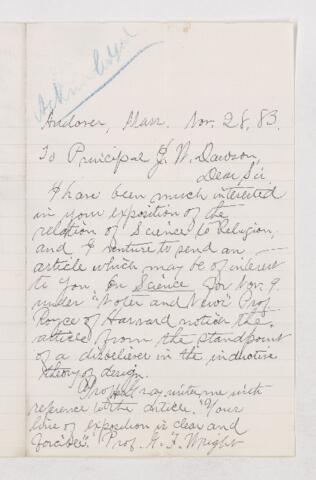 Acknowledged
Andover, Mass. Nov. 28, 83.
To Principal J. W. Dawson,
Dear Sir
I have been much interested
in your exposition of the
relation of Science to Religion,
and I venture to send an
article which may be of interest
to you. In Science for Nov. 9.
under "Notes and News" Prof.
Royce of Harvard notices the
article from the standpoint
of a disbeliever in the inductive
theory of design.
Prof Gray writes me with
reference to the article. "Your
line of exposition is clear and
forcible". Prof. G. F. Wright